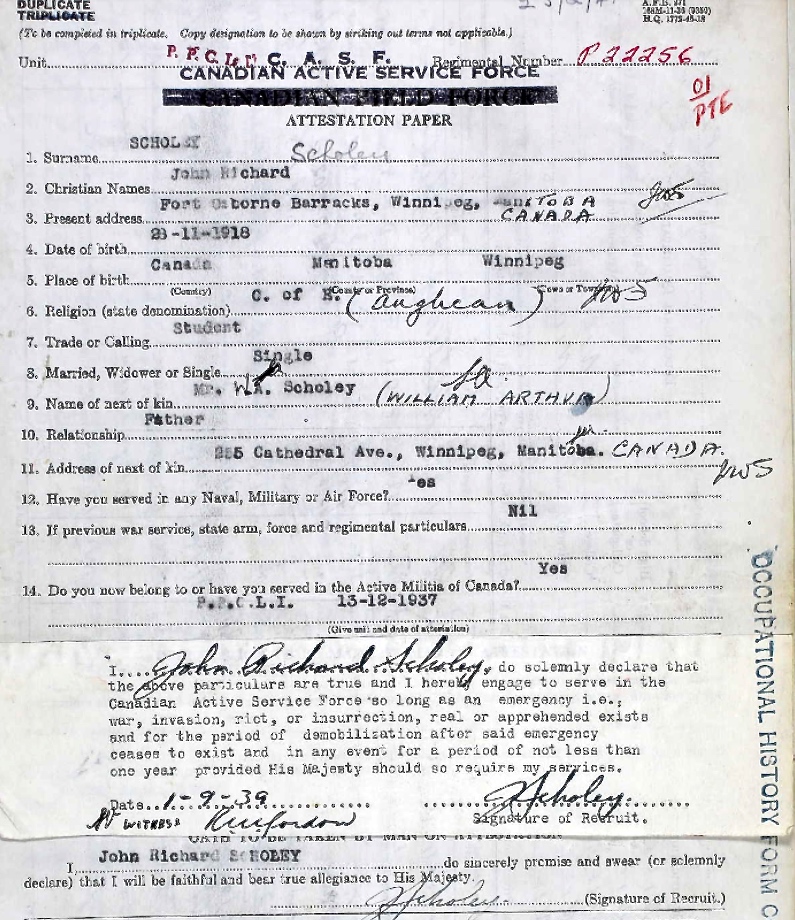 DUPLICATE
TRIPLICATE
(To be completed in triplicate. Copy designation to be shown by striking out terms not applicable.)
H.Q. 1772-45-18
Unit P.P.C.L.I. C. A. S. F. Regimental Number P22256
CANADIAN ACTIVE SERVICE FORCE
CANADIAN FIELD FORCE
01
PTE
ATTESTATION PAPER
SCHOLEY
1. Surname Scholey
John Richard
2. Christian Names
Fort Osborne Barracks, Winnipeg, MANITOBA
3. Present address CANADA
23-11-1918
4. Date of birth
Canada Manitoba Winnipeg
5. Place of birth
(Country) (County or Province) (Town or Township)
C. of E. (Anglican)
6. Religion (state denomination)
Student
7. Trade or Calling
Single
8. Married, Widower or Single
Mr. W.A. Scholey (WILLIAM ARTHUR)
9. Name of next of kin
Father
10. Relationship
255 Cathedral Ave., Winnipeg, Manitoba. CANADA.
11. Address of next of kin
Yes
12. Have you served in any Naval, Military or Air Force?
Nil
13. If previous war service, state arm, force and regimental particulars
Yes
14. Do you now belong to or have you served in the Active Militia of Canada?
P.P.C.L.I. 13-12-1937
(Give unit and date of attestation)
I....John Richard Scholey, do solemnly declare that
the above particulars are true and I hereby engage to serve in the
Canadian Active Service Force so long as an emergency i.e.,
war, invasion, riot, or insurrection, real or apprehended exists
and for the period of demobilization after said emergency
ceases to exist and in any event for a period of not less than
one year provided His Majesty should so require my services.
Date..1-9-39 JScholey.
WITNESS Signature of Recruit.
OATH TO BE TAKEN BY MAN ON ATTESTATION
John Richard SCHOLEY
I,..........do sincerely promise and swear (or solemnly
declare) that I will be faithful and bear true allegiance to His Majesty.
JScholey (Signature of Recruit.)
OCCUPATIONAL HISTORY FORM C